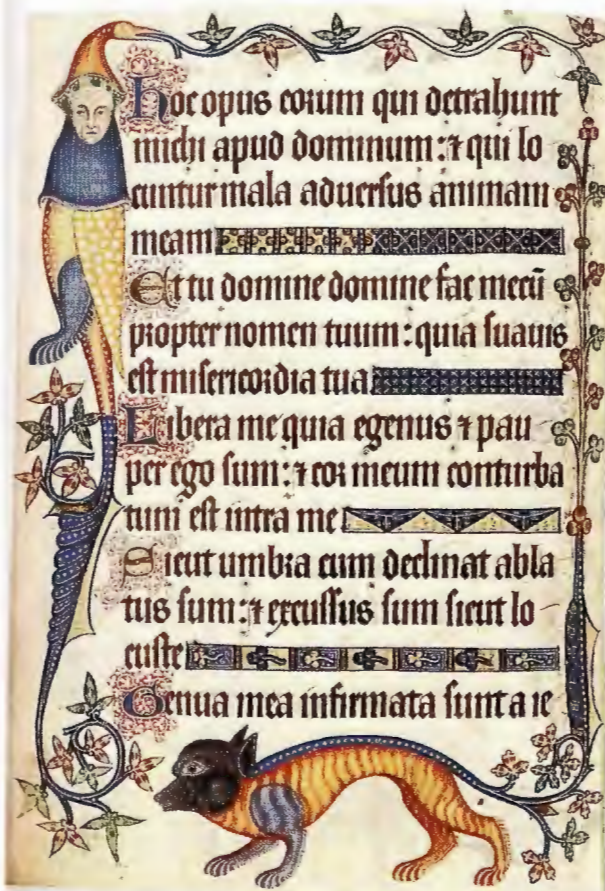 Hoc opus eorum qui detrahunt
michi apud dominum: ⁊ qui lo
cuntur mala adversus animam
meam
Et tu domine domine fac mecū
propter nomen tuum: quia suauis
est misericordia tua
Libera me quia egenus ⁊ pau
per ego sum: ⁊ cor meum conturba
tum est intra me
Sicut umbra cum declinat abla
tus sum: ⁊ excussus sum sicut lo
custe
Genua mea infirmata sunt a ie